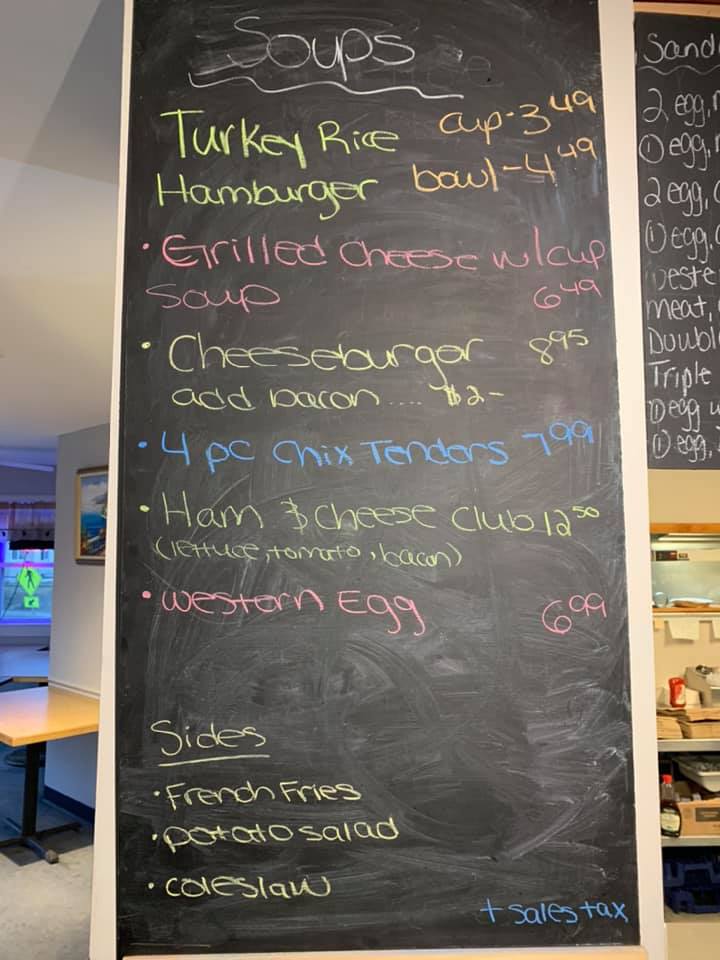 Soups
Turkey Rice cup-3 49
Hamburger bowl-4 49
• Grilled Cheese w/cup
Soup 6 49
• Cheeseburger 8 95
add bacon .... $2-
• 4 pc Chix Tenders 7 99
• Ham & Cheese Club 12 50
(lettuce, tomato, bacon)
• Western Egg 6 99
Sides
• French Fries
• potato salad
• coleslaw
+ sales tax
2 egg,
① egg,
2 egg,
① egg,
meat,
Triple
① egg
① egg,